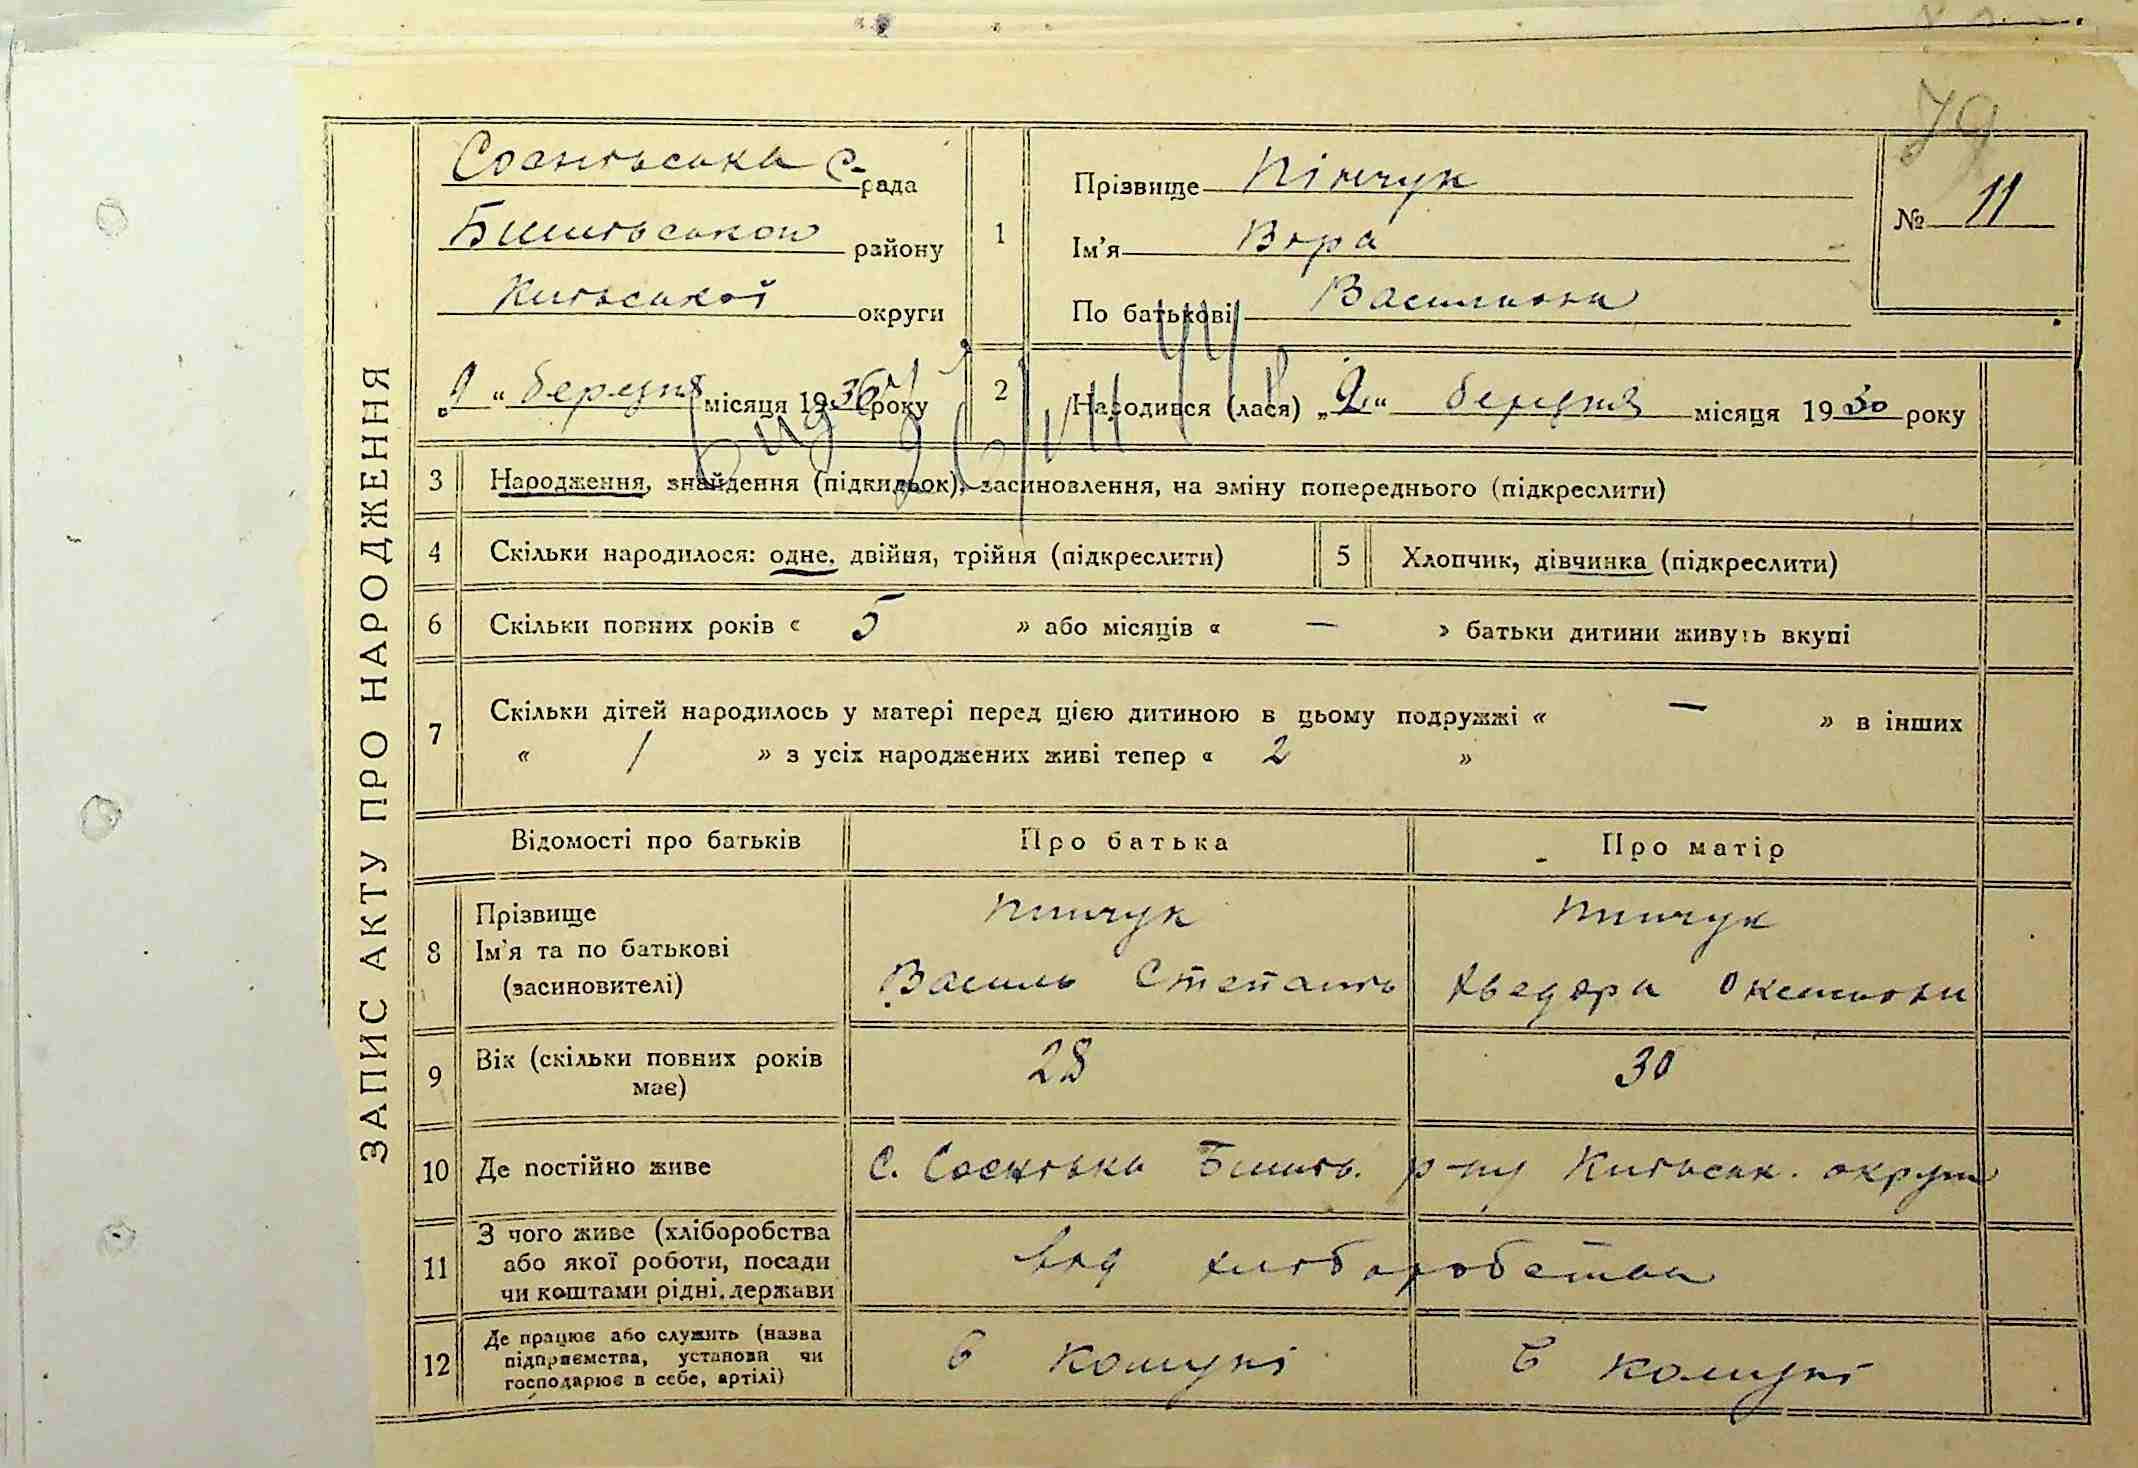 79
ЗАПИС АКТУ ПРО НАРОДЖЕННЯ
Соснівська С-рада
Бишівського району
Київської округи
„9“ березня місяця 1930 року
1
Прізвище Пінчук
Ім'я Віра
По батькові Василівна
№ 11
2
Народився (лася) „2“ березня місяця 1930 року
3 Народження, знайдення (підкидьок), засиновлення, на зміну попереднього (підкреслити)
4 Скільки народилося: одне, двійня, трійня (підкреслити)
5 Хлопчик, дівчинка (підкреслити)
6 Скільки повних років « 5 » або місяців « — » батьки дитини живуть вкупі
7 Скільки дітей народилось у матері перед цією дитиною в цьому подружжі « — » в інших
« / » з усіх народжених живі тепер « 2 »
Відомості про батьків Про батька Про матір
8 Прізвище Пинчук Пинчук
Ім'я та по батькові Василь Степанів Хведора
(засиновителі)
9 Вік (скільки повних років має) 28 30
10 Де постійно живе с. Соснівка Бишів. р-ну Київськ. округи
11 З чого живе (хліборобства або якої роботи, посади чи коштами рідні, держави від хліборобства
12 Де працює або служить (назва підприємства, установи чи господарює в себе, артілі) в комуні в комуні